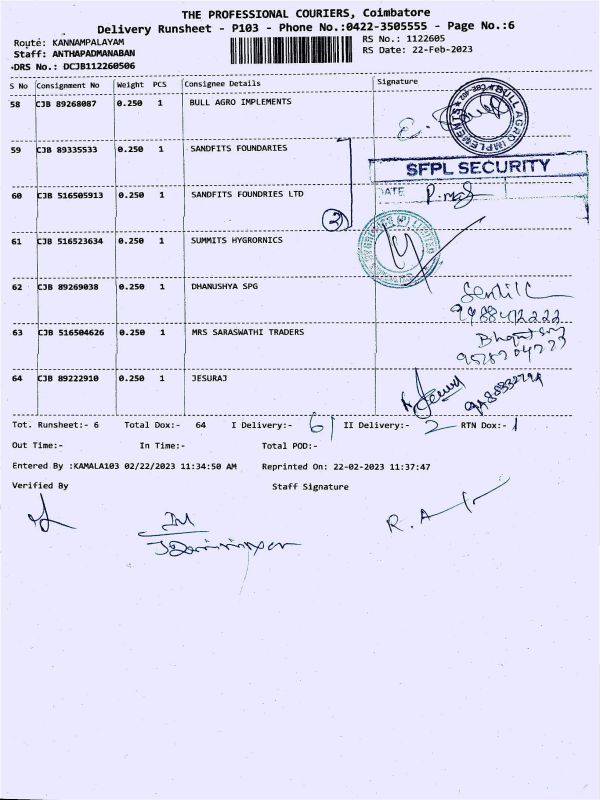 THE PROFESSIONAL COURIERS, Coimbatore
Delivery Runsheet - P103 - Phone No.:0422-3505555 - Page No.:6
Route: KANNAMPALAYAM
RS No.: 1122605
Staff: ANTHAPADMANABAN
RS Date: 22-Feb-2023
DRS No.: DCJB112260506
S No Consignment No Weight PCS Consignee Details Signature
58 CJB 89268087 0.250 1 BULL AGRO IMPLEMENTS
BULL AGRO IMPLEMENTS
59 CJB 89335533 0.250 1 SANDFITS FOUNDARIES
SFPL SECURITY
60 CJB 516505913 0.250 1 SANDFITS FOUNDRIES LTD
DATE
2
61 CJB 516523634 0.250 1 SUMMITS HYGRORNICS
62 CJB 89269038 0.250 1 DHANUSHYA SPG
63 CJB 516504626 0.250 1 MRS SARASWATHI TRADERS
64 CJB 89222910 0.250 1 JESURAJ
Tot. Runsheet:- 6 Total Dox:- 64 I Delivery:- 61 II Delivery:- 2 RTN Dox:- 1
Out Time:- In Time:- Total POD:-
Entered By :KAMALA103 02/22/2023 11:34:50 AM Reprinted On: 22-02-2023 11:37:47
Verified By Staff Signature